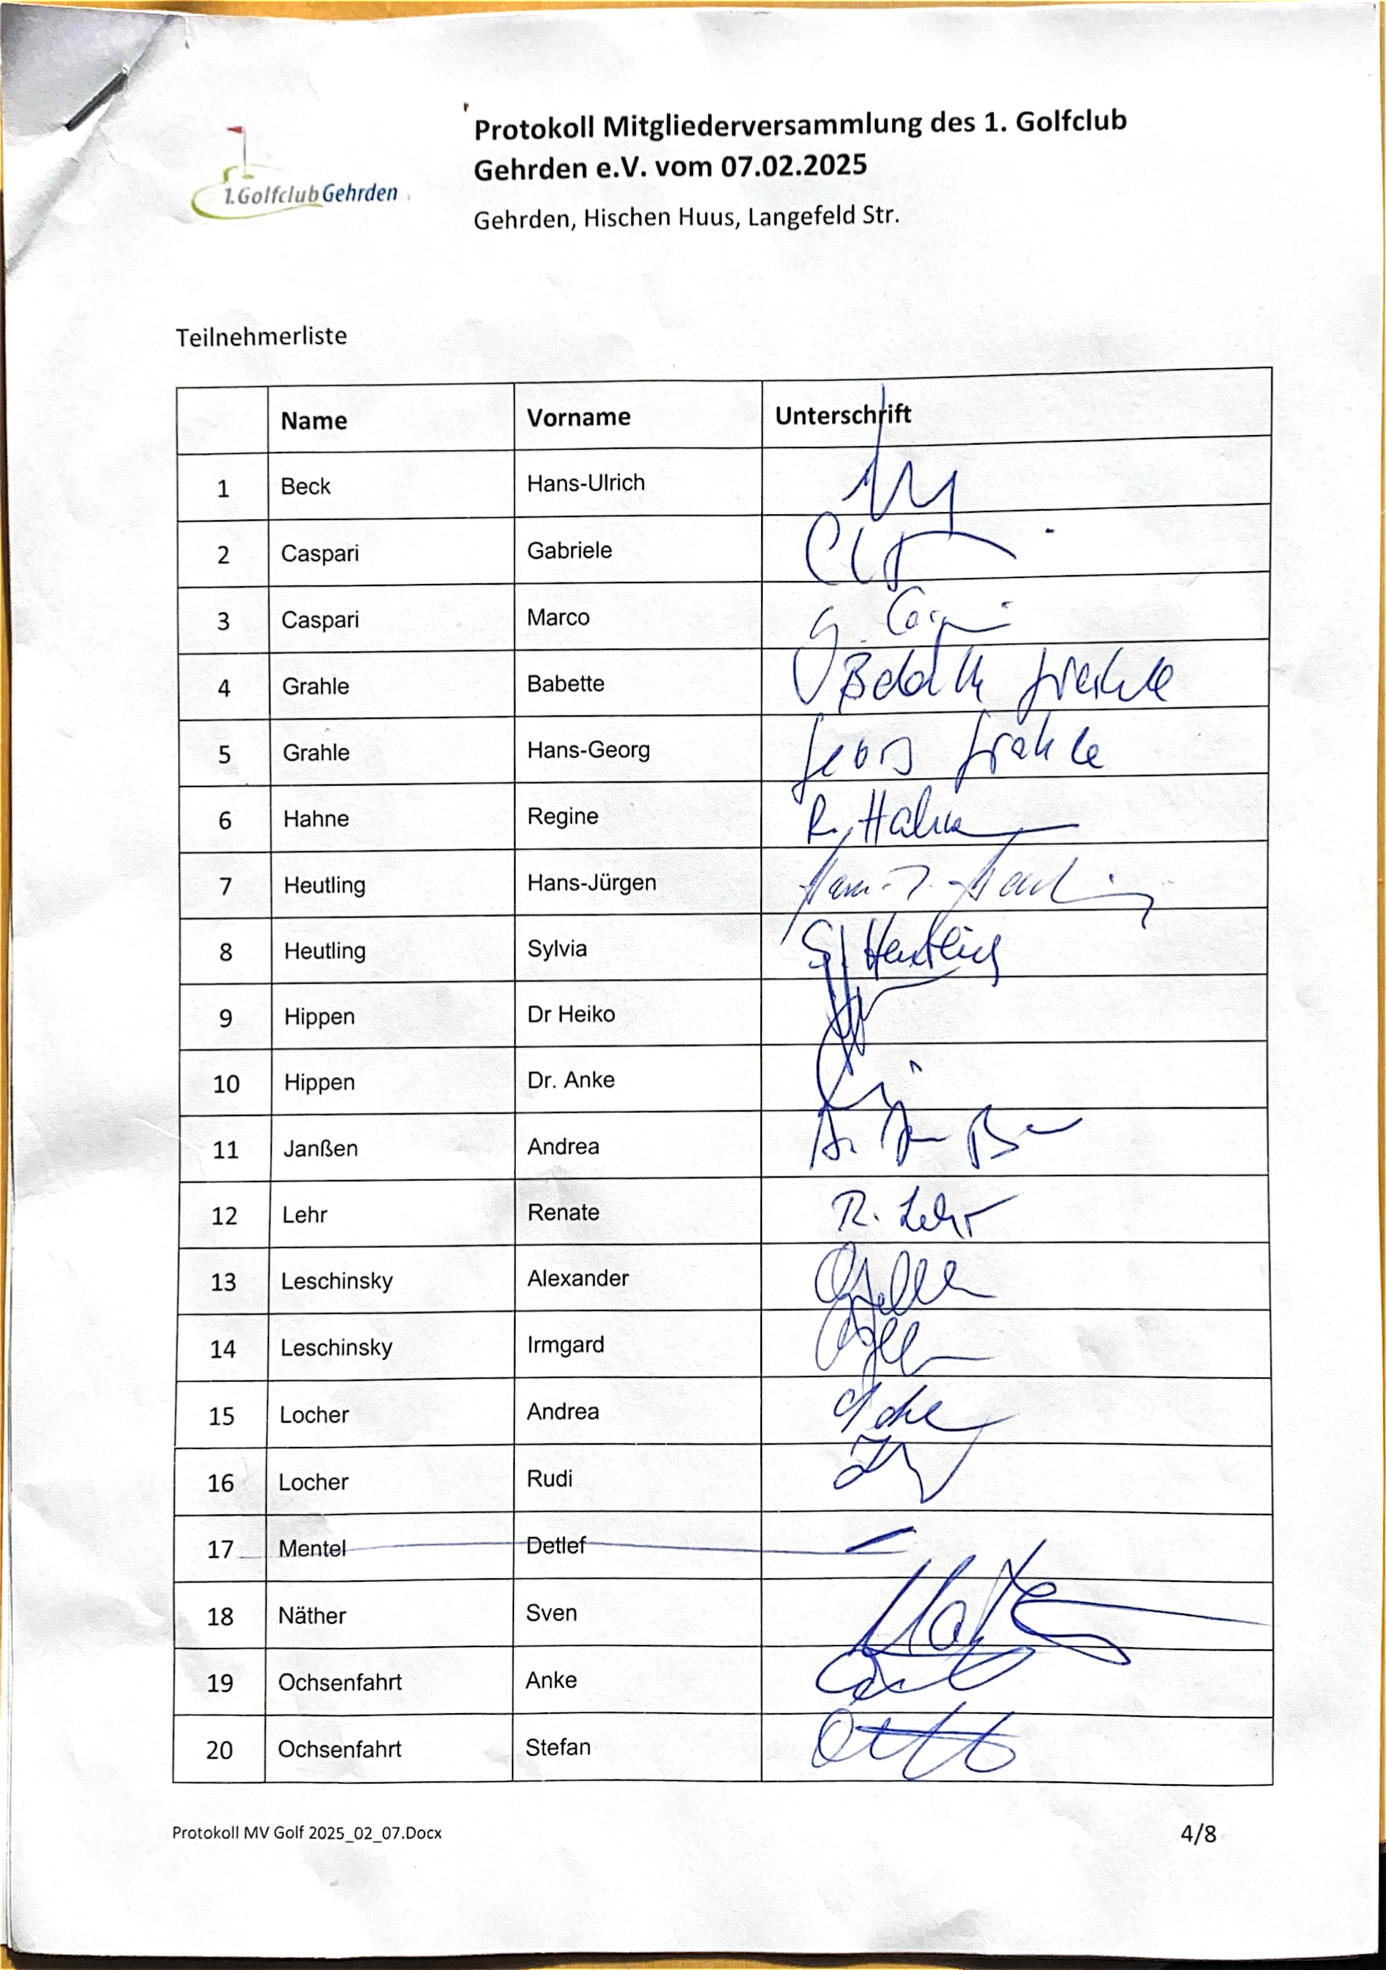 Protokoll Mitgliederversammlung des 1. Golfclub
Gehrden e.V. vom 07.02.2025
1.Golfclub Gehrden
Gehrden, Hischen Huus, Langefeld Str.
Teilnehmerliste
Name Vorname Unterschrift
1 Beck Hans-Ulrich
2 Caspari Gabriele
3 Caspari Marco
4 Grahle Babette
5 Grahle Hans-Georg Georg Grahle
6 Hahne Regine R. Hahne
7 Heutling Hans-Jürgen
8 Heutling Sylvia S. Heutling
9 Hippen Dr Heiko
10 Hippen Dr. Anke
11 Janßen Andrea
12 Lehr Renate R. Lehr
13 Leschinsky Alexander
14 Leschinsky Irmgard
15 Locher Andrea
16 Locher Rudi
17 Mentel Detlef
18 Näther Sven
19 Ochsenfahrt Anke
20 Ochsenfahrt Stefan
Protokoll MV Golf 2025_02_07.Docx 4/8